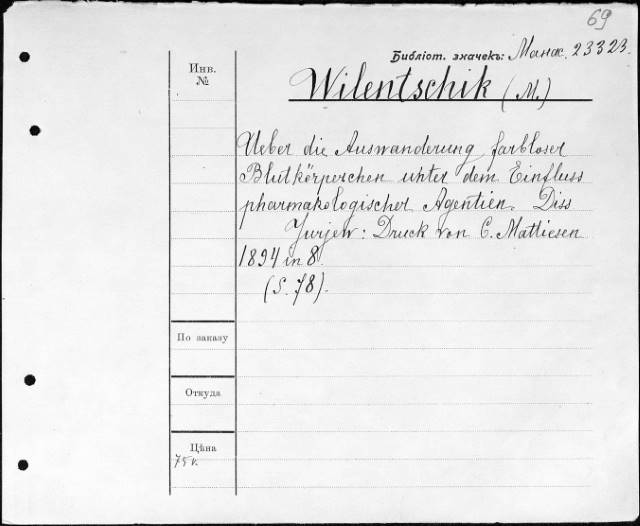 69
Библіот. значекъ: Манас. 23323.
Инв.
№
Wilentschik (M.)
Ueber die Auswanderung farbloser
Blutkörperchen unter dem Einfluss
pharmakologischer Agentien. Diss
Jurjew: Druck von C. Mattiesen
1894 in 8.
(S. 78).
По заказу
Откуда
Цѣна
75 к.